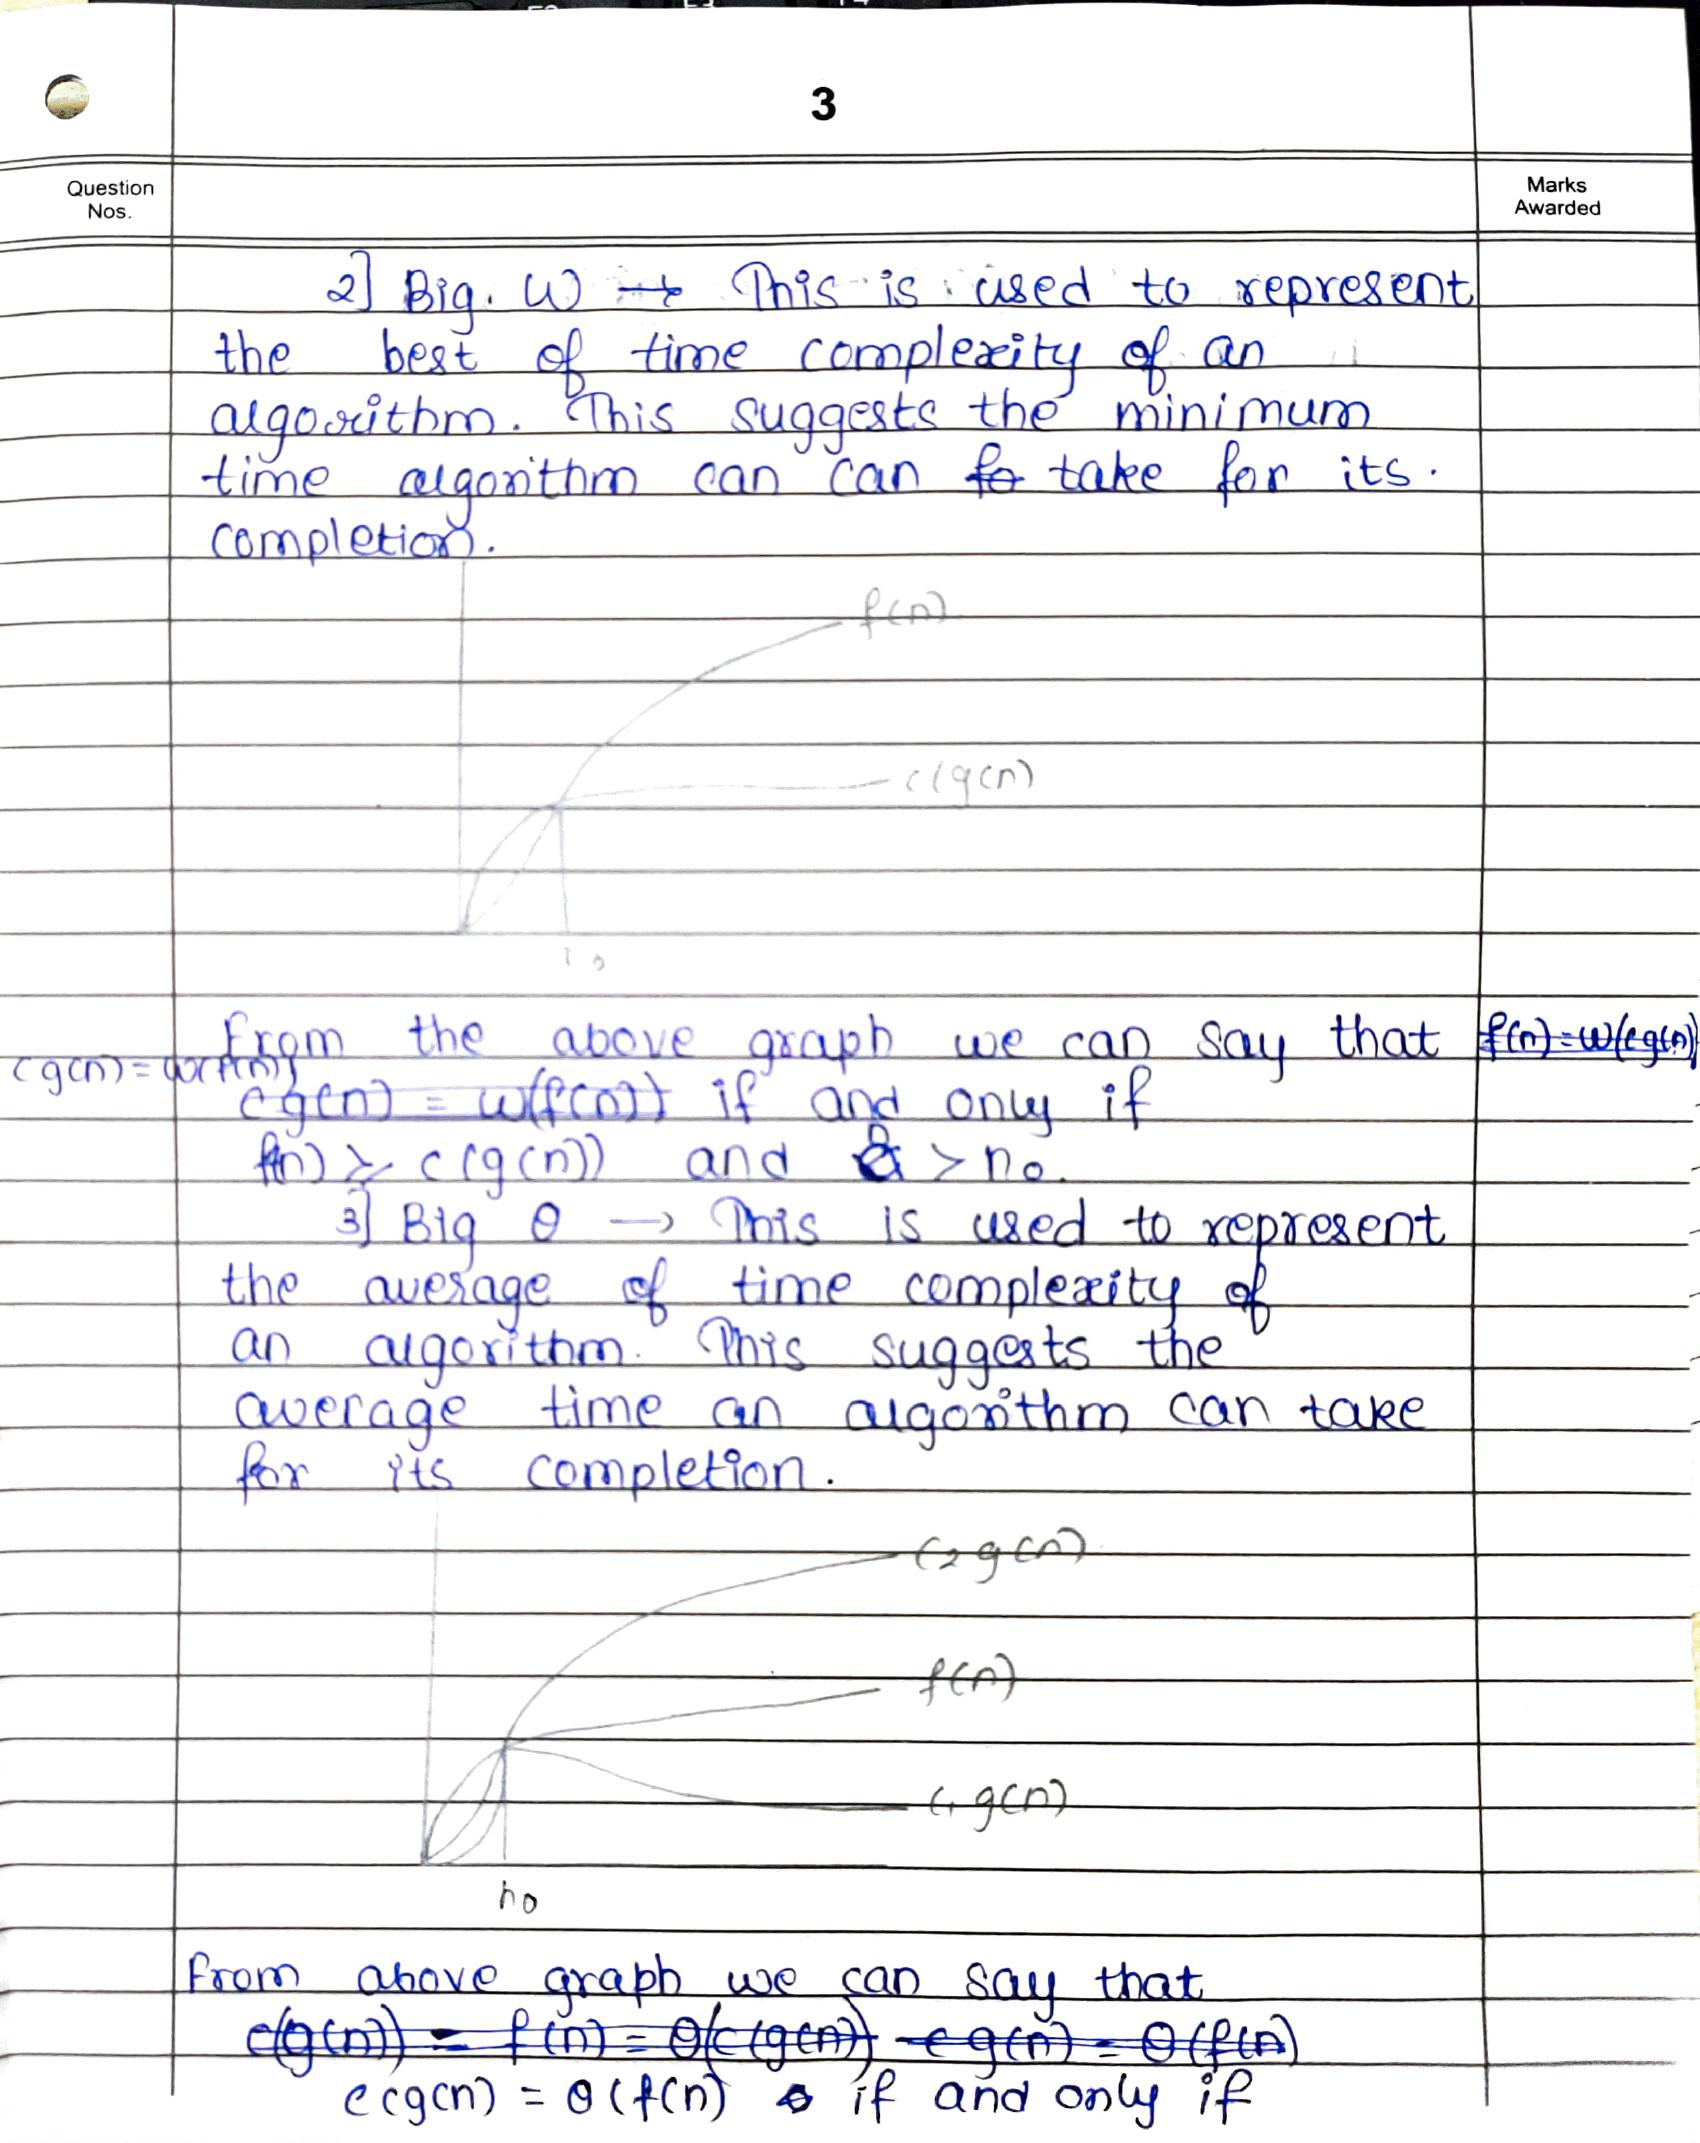 3
Question
Nos.
Marks
Awarded
2] Big. ω → This is used to represent
the best of time complexity of an
algorithm. This suggests the minimum
time algorithm can can to take for its.
completion.
f(n)
c(g(n)
From the above graph we can say that f(n) = ω(cg(n))
cg(n) = ω(f(n))
cg(n) = ω(f(n)) if and only if
f(n) ≥ c(g(n)) and > n₀.
3] Big θ → This is used to represent
the average of time complexity of
an algorithm. This suggests the
average time an algorithm can take
for its completion.
c₂g(n)
f(n)
c₁g(n)
n₀
From above graph we can say that
c(g(n)) = f(n) = θ(c(g(n)) c g(n) = θ(f(n)
c(g(n) = θ(f(n) if and only if